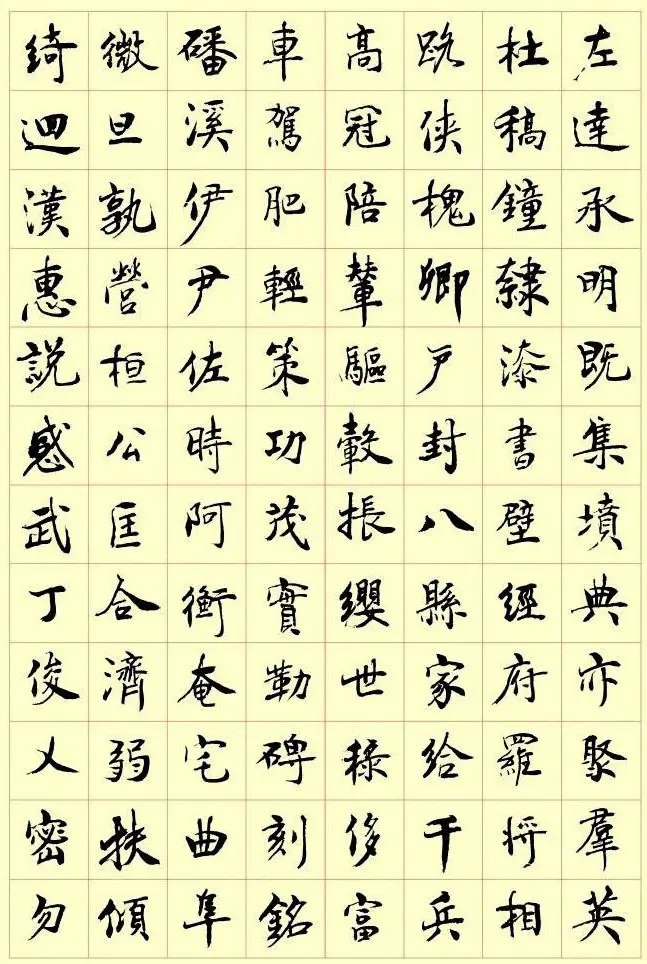 左達承明既集墳典亦聚羣英
杜稿鐘隸漆書壁經府羅將相
路俠槐卿戶封八縣家給千兵
高冠陪輦驅轂振纓世祿侈富
車駕肥輕策功茂實勒碑刻銘
磻溪伊尹佐時阿衡奄宅曲阜
微旦孰營桓公匡合濟弱扶傾
綺迴漢惠說感武丁俊乂密勿